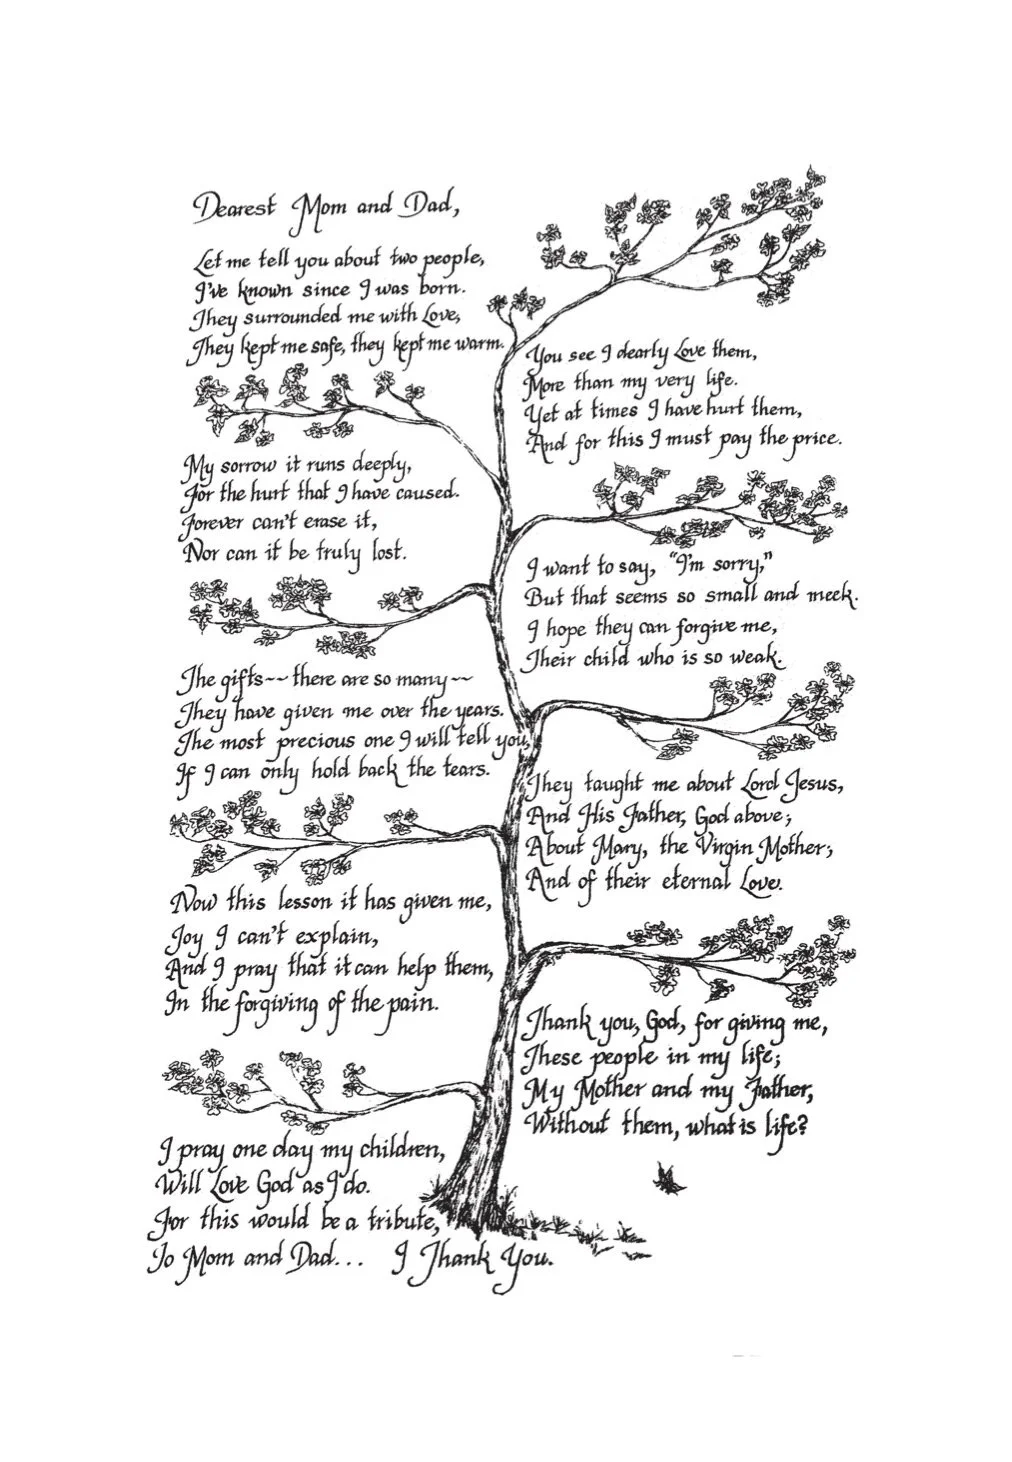 Dearest Mom and Dad,
Let me tell you about two people,
I've known since I was born.
They surrounded me with Love,
They kept me safe, they kept me warm.
You see I dearly Love them,
More than my very life.
Yet at times I have hurt them,
And for this I must pay the price.
My sorrow it runs deeply,
For the hurt that I have caused.
Forever can't erase it,
Nor can it be truly lost.
I want to say, "I'm sorry,"
But that seems so small and meek.
I hope they can forgive me,
Their child who is so weak.
The gifts~~there are so many~~
They have given me over the years.
The most precious one I will tell you,
If I can only hold back the tears.
They taught me about Lord Jesus,
And His Father, God above;
About Mary, the Virgin Mother;
And of their eternal Love.
Now this lesson it has given me,
Joy I can't explain,
And I pray that it can help them,
In the forgiving of the pain.
Thank you, God, for giving me,
These people in my life;
My Mother and my Father,
Without them, what is life?
I pray one day my children,
Will Love God as I do.
For this would be a tribute,
To Mom and Dad... I Thank You.